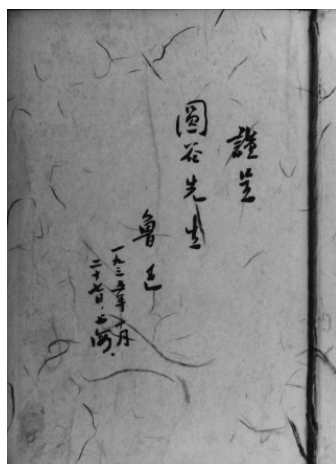 謹呈
圓谷先生
魯迅
一九三五年十月
二十七日，上海．